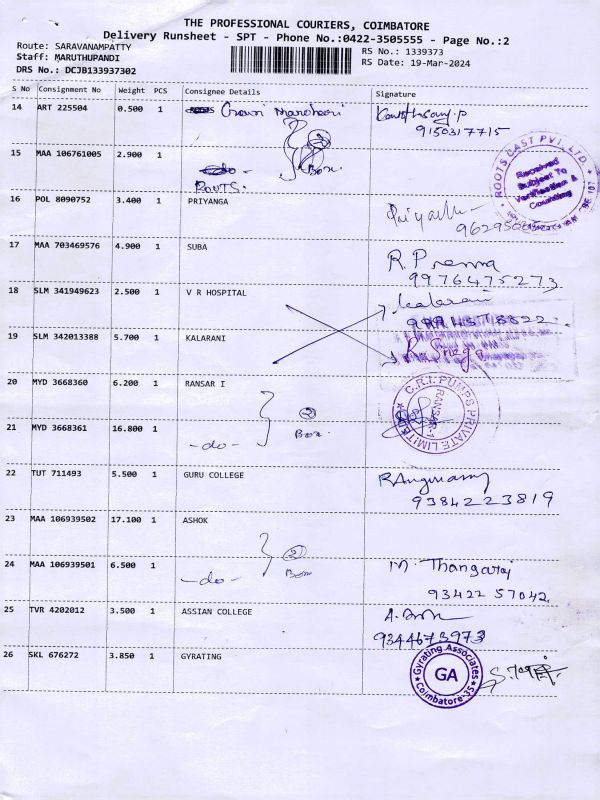 THE PROFESSIONAL COURIERS, COIMBATORE
Delivery Runsheet - SPT - Phone No.:0422-3505555 - Page No.:2
Route: SARAVANAMPATTY
Staff: MARUTHUPANDI
DRS No.: DCJB133937302
RS No.: 1339373
RS Date: 19-Mar-2024
S No Consignment No Weight PCS Consignee Details Signature
14 ART 225504 0.500 1 Gowri Manohari
9150317715
15 MAA 106761005 2.900 1 -do- Box.
ROOTS.
ROOTS CAST PVT LTD.
Received
Subject To
Verification &
Counting
16 POL 8090752 3.400 1 PRIYANGA
17 MAA 703469576 4.900 1 SUBA R. Prema
9976475273
18 SLM 341949623 2.500 1 V R HOSPITAL kalarani
19 SLM 342013388 5.700 1 KALARANI R. Snega
20 MYD 3668360 6.200 1 RANSAR I 2
C.R.I. PUMPS PRIVATE LIMITED
RANSAR-1
21 MYD 3668361 16.800 1 -do- Box.
22 TUT 711493 5.500 1 GURU COLLEGE RAnguswamy
9384223819
23 MAA 106939502 17.100 1 ASHOK 2
24 MAA 106939501 6.500 1 -do- Box M. Thangaraj
93422 57042
25 TVR 4202012 3.500 1 ASSIAN COLLEGE
9344673973
26 SKL 676272 3.850 1 GYRATING
Gyrating Associates
GA
Coimbatore-35